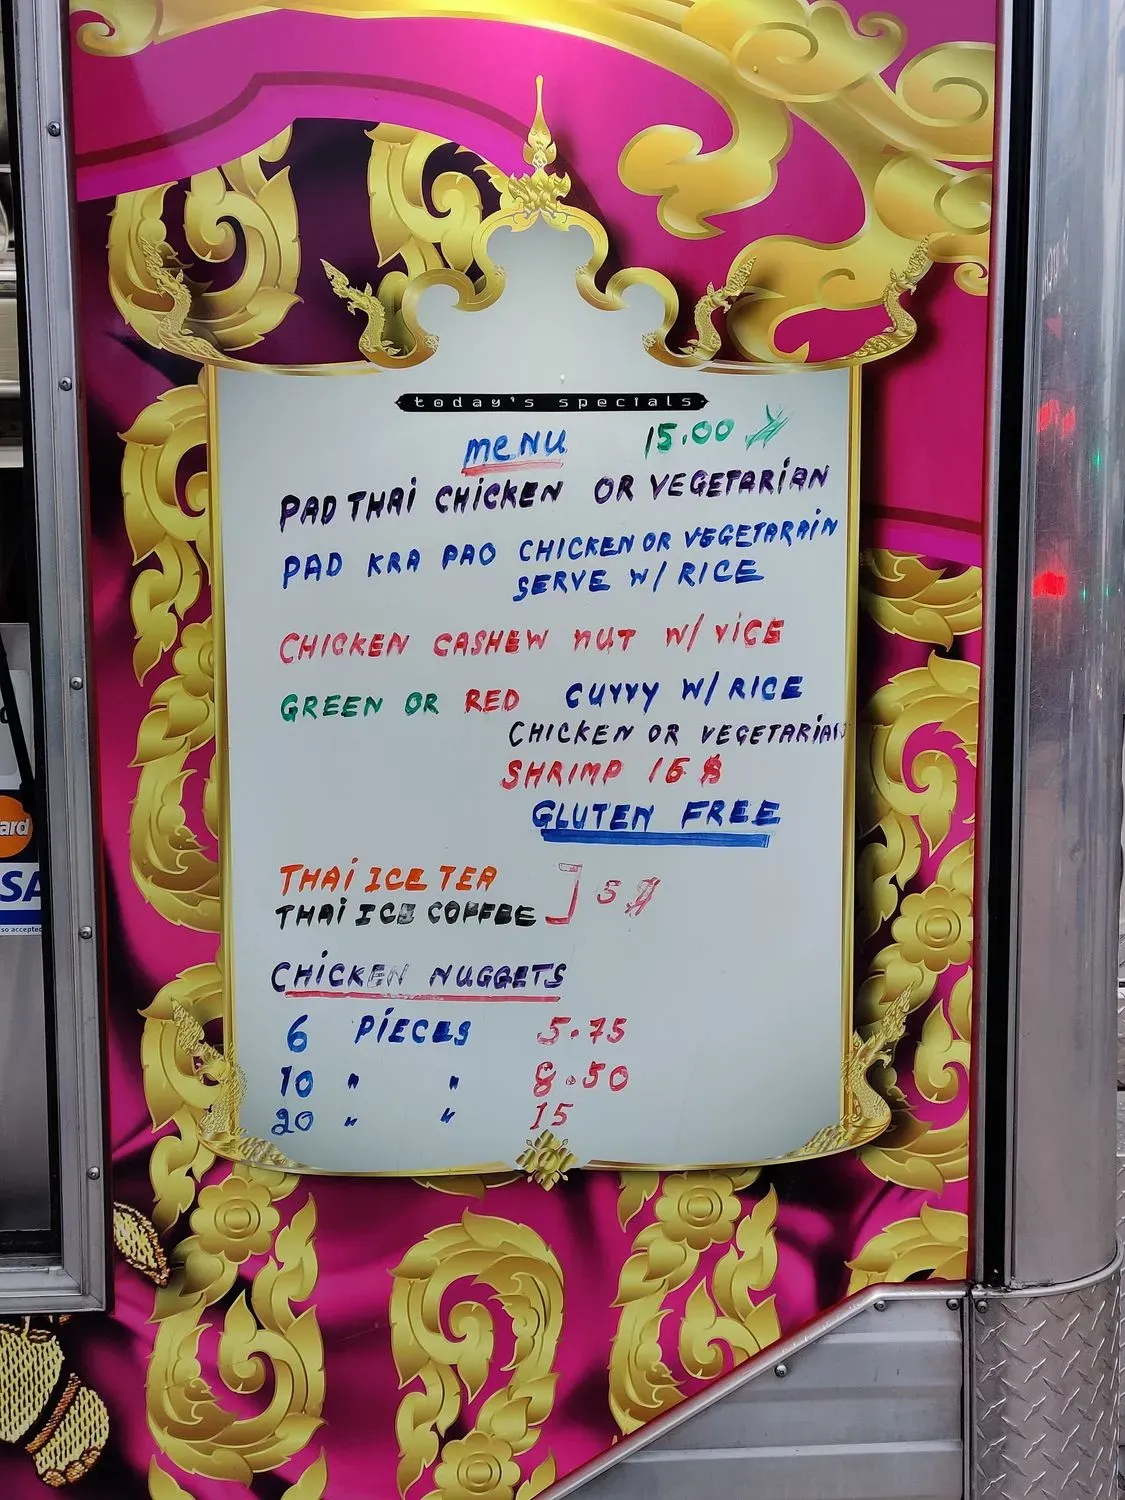 today's specials
MENU 15.00 $
PAD THAI CHICKEN OR VEGETARIAN
PAD KRA PAO CHICKEN OR VEGETARAIN
SERVE W/ RICE
CHICKEN CASHEW NUT W/ rICE
GREEN OR RED CUrrY W/ RICE
CHICKEN OR VEGETARIAN
SHRIMP 16 $
GLUTEN FREE
THAI ICE TEA
THAI ICE COFFEE ] 5 $
CHICKEN NUGGETS
6 PIECES 5.75
10 " " 8.50
20 " " 15
ard
SA
so accepted